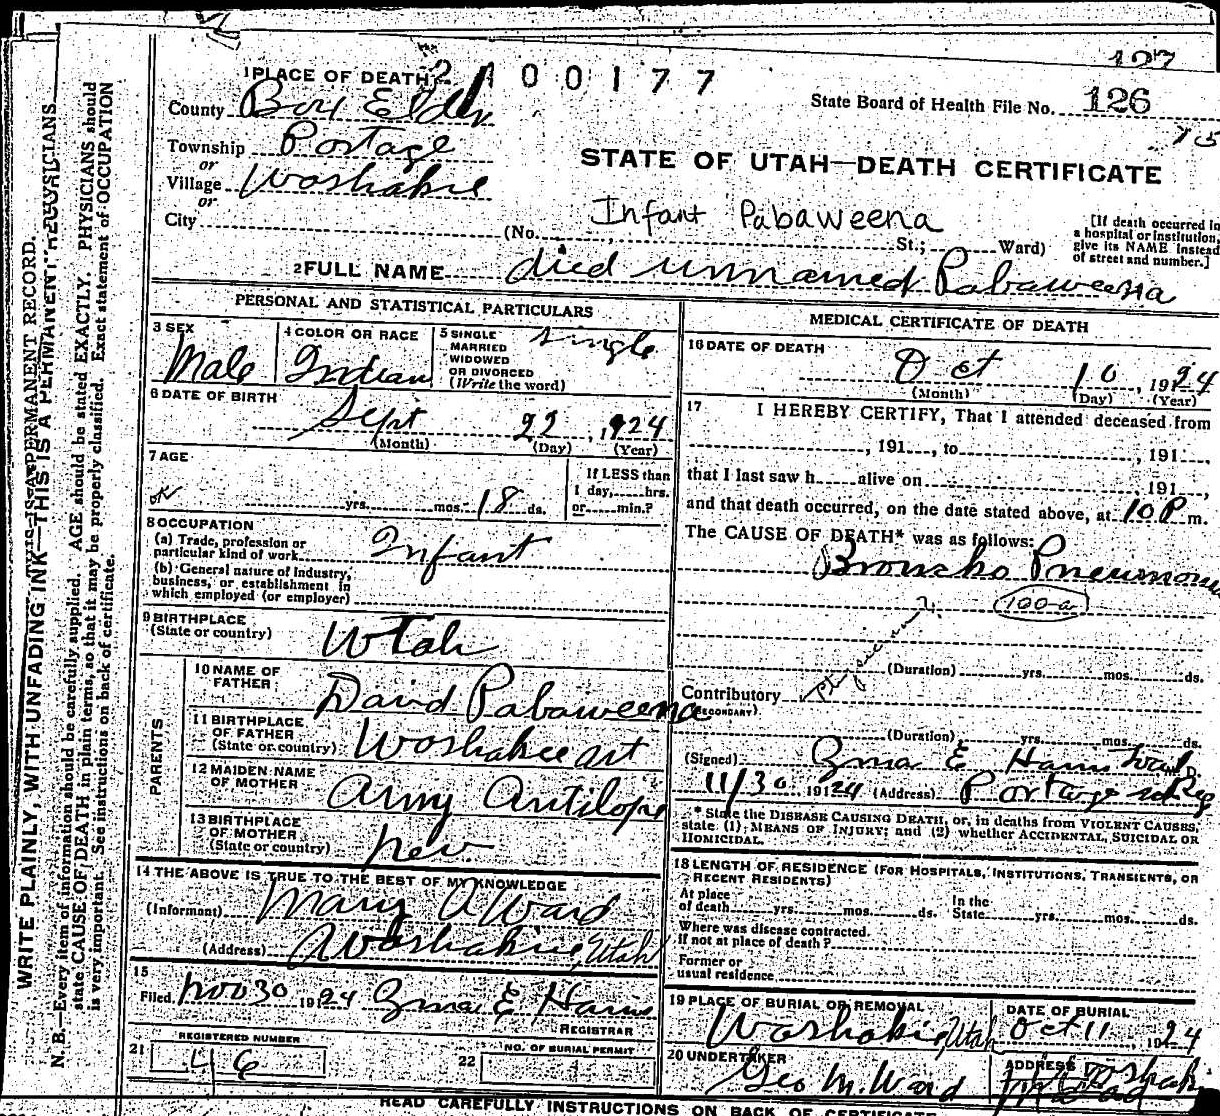 127
1 PLACE OF DEATH 2400177
County Box Elder
State Board of Health File No. 126
Township Portage
or
Village Washakie
or
City
STATE OF UTAH—DEATH CERTIFICATE
Infant Pabaweena
(No. St.; Ward)
[If death occurred in
a hospital or institution,
give its NAME instead
of street and number.]
2 FULL NAME died unnamed Pabaweena
PERSONAL AND STATISTICAL PARTICULARS
3 SEX
Male
4 COLOR OR RACE
Indian
5 SINGLE
MARRIED
WIDOWED
OR DIVORCED
(Write the word)
Single
6 DATE OF BIRTH
Sept 22, 1924
(Month) (Day) (Year)
7 AGE
ok
yrs. mos. 18 ds.
If LESS than
1 day, hrs.
or min.?
8 OCCUPATION
(a) Trade, profession or
particular kind of work Infant
(b) General nature of industry,
business, or establishment in
which employed (or employer)
9 BIRTHPLACE
(State or country) Utah
PARENTS
10 NAME OF
FATHER David Pabaweena
11 BIRTHPLACE
OF FATHER
(State or country) Washakee ut
12 MAIDEN NAME
OF MOTHER Army Antilope
13 BIRTHPLACE
OF MOTHER
(State or country) Nev
14 THE ABOVE IS TRUE TO THE BEST OF MY KNOWLEDGE
(Informant) Mary A Ward
(Address) Washakie, Utah
15
Filed Nov 30 1924 Zma E Harris
REGISTRAR
REGISTERED NUMBER
21 46
NO. OF BURIAL PERMIT
22
MEDICAL CERTIFICATE OF DEATH
16 DATE OF DEATH
Oct 10, 1924
(Month) (Day) (Year)
17 I HEREBY CERTIFY, That I attended deceased from
, 191 , to , 191 ,
that I last saw h alive on 191 ,
and that death occurred, on the date stated above, at 10 P m.
The CAUSE OF DEATH* was as follows:
Broncho Pneumonia
100-a
(Duration) yrs. mos. ds.
Contributory
(SECONDARY)
(Duration) yrs. mos. ds.
(Signed) Zma E Harris
11/30 1924 (Address) Portage
* State the DISEASE CAUSING DEATH, or, in deaths from VIOLENT CAUSES,
state (1) MEANS OF INJURY; and (2) whether ACCIDENTAL, SUICIDAL OR
HOMICIDAL.
18 LENGTH OF RESIDENCE (FOR HOSPITALS, INSTITUTIONS, TRANSIENTS, OR
RECENT RESIDENTS)
At place
of death yrs. mos. ds.
In the
State yrs. mos. ds.
Where was disease contracted.
if not at place of death?
Former or
usual residence
19 PLACE OF BURIAL OR REMOVAL
Washakie, Utah
DATE OF BURIAL
Oct 11 1924
20 UNDERTAKER
Geo M. Ward
ADDRESS
READ CAREFULLY INSTRUCTIONS ON BACK OF CERTIFICATE
WRITE PLAINLY, WITH UNFADING INK—THIS IS A PERMANENT RECORD.
N. B.—Every item of information should be carefully supplied. AGE should be stated EXACTLY. PHYSICIANS should
state CAUSE OF DEATH in plain terms, so that it may be properly classified. Exact statement of OCCUPATION
is very important. See instructions on back of certificate.